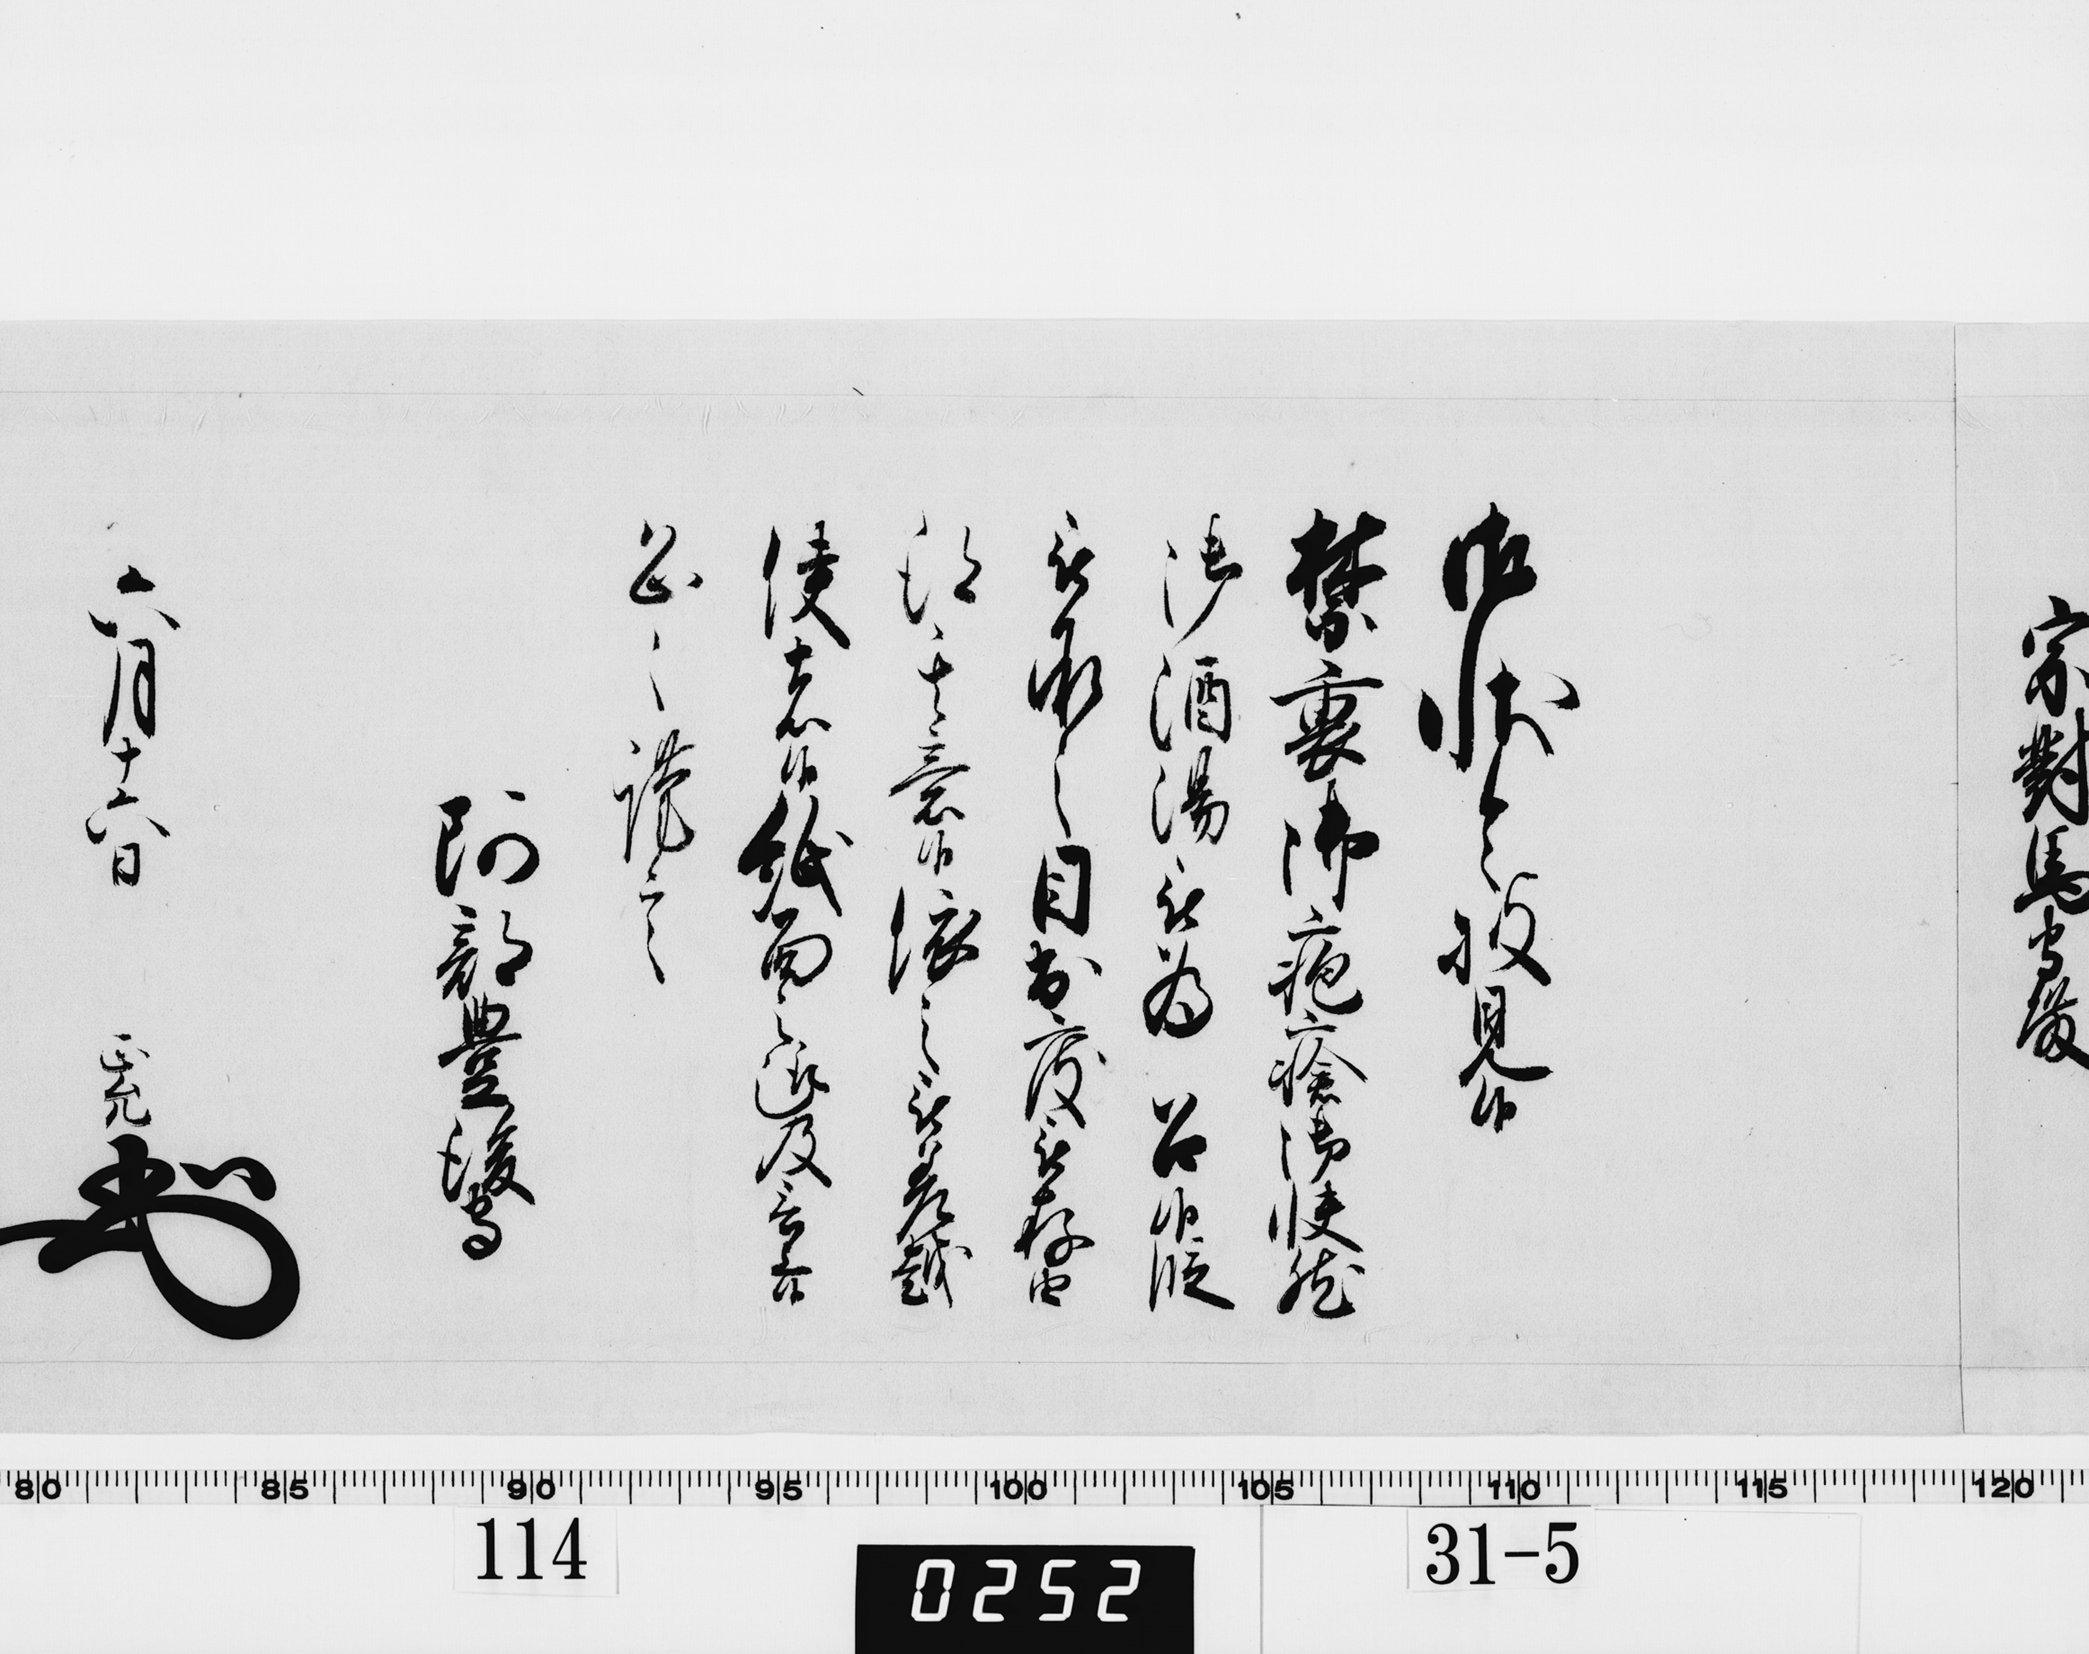 宗對馬守殿
御状令披見候
禁裏御疱瘡御快然
御酒湯被為 召候段
被承之目出度被存由
得其意候依之被差越
使者候紙面之趣及言上候
恐々謹言
阿部豊後守
六月十六日 正允
80 85 90 95 100 105 110 115 120
114
31-5
0252